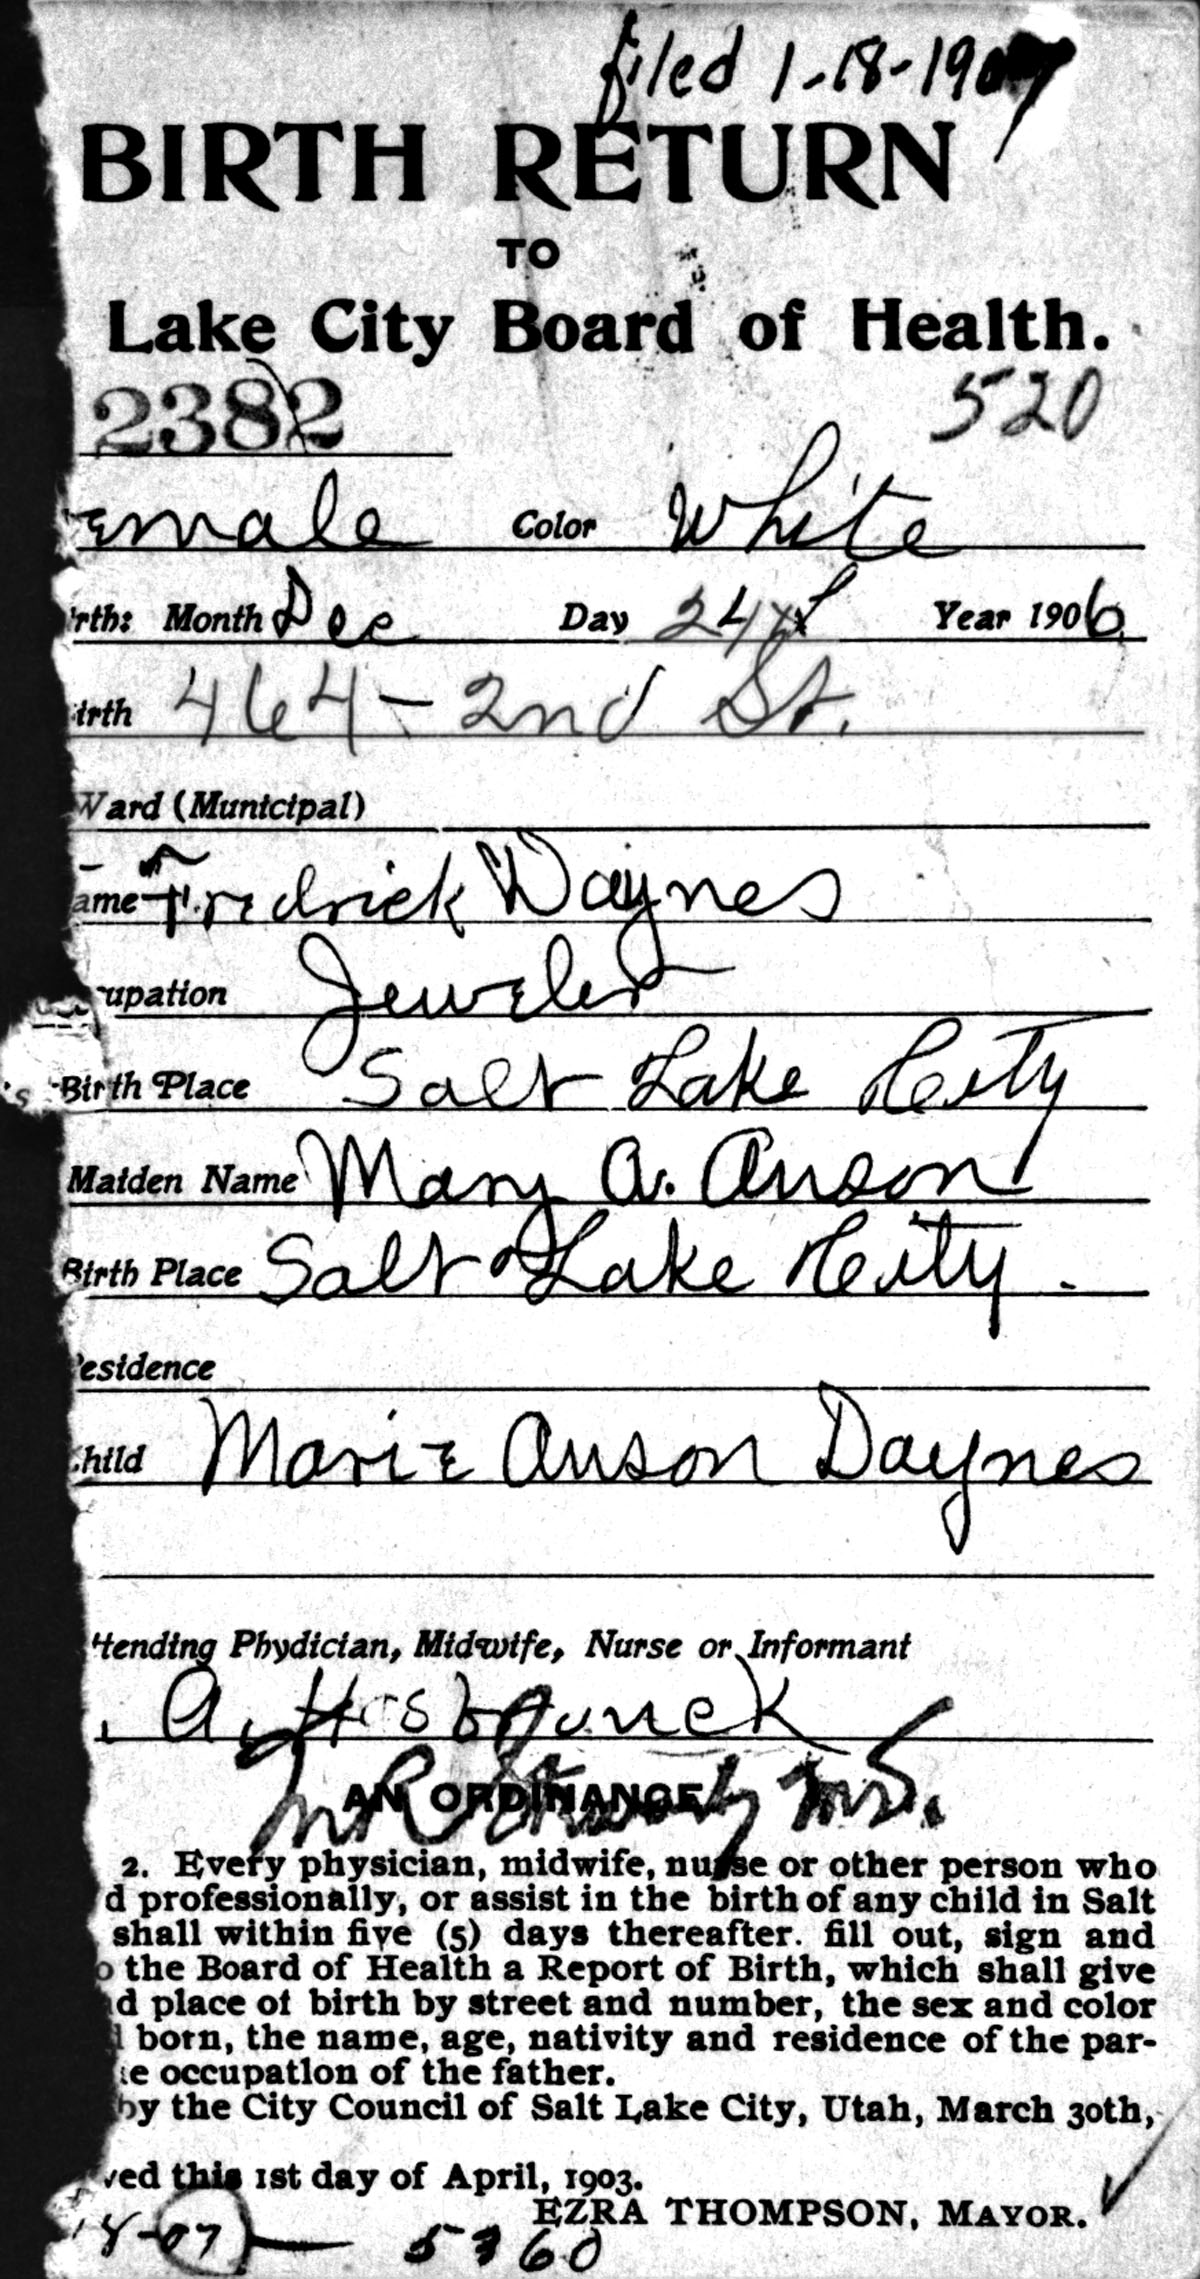 filed 1-18-1907
BIRTH RETURN
TO
Lake City Board of Health.
2382 520
emale Color White
rth: Month Dec Day 24th Year 1906
irth 464 - 2nd St.
Ward (Municipal)
ame Fredrick Daynes
upation Jeweler
s Birth Place Salt Lake City
Maiden Name Mary A. Anson
Birth Place Salt Lake City.
esidence
hild Marie Anson Daynes
ttending Phydician, Midwife, Nurse or Informant
A. Hasbrouck
AN ORDINANCE
2. Every physician, midwife, nurse or other person who
d professionally, or assist in the birth of any child in Salt
shall within five (5) days thereafter. fill out, sign and
o the Board of Health a Report of Birth, which shall give
d place of birth by street and number, the sex and color
l born, the name, age, nativity and residence of the par-
e occupation of the father.
by the City Council of Salt Lake City, Utah, March 30th,
ved this 1st day of April, 1903.
EZRA THOMPSON, MAYOR.
18-07 - 5760